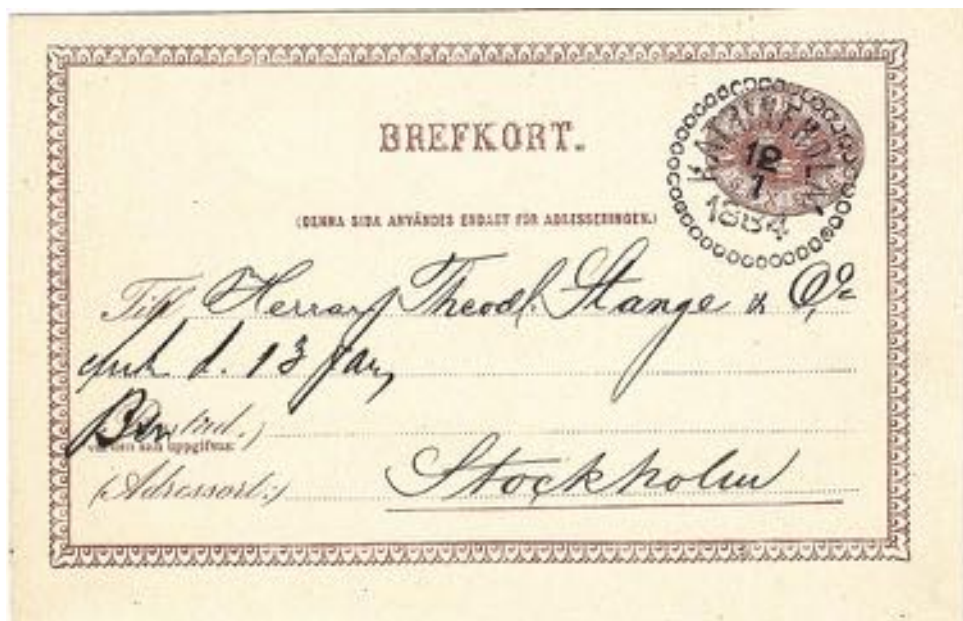 BREFKORT.
KATRINEHOLM
12
1
1884
(DENNA SIDA ANVÄNDES ENDAST FÖR ADRESSERINGEN.)
Till Herrar Theodl. Stange & Co
d. 13 Jan,
(Bostad.)
när den kan uppgifvas:
(Adressort:) Stockholm